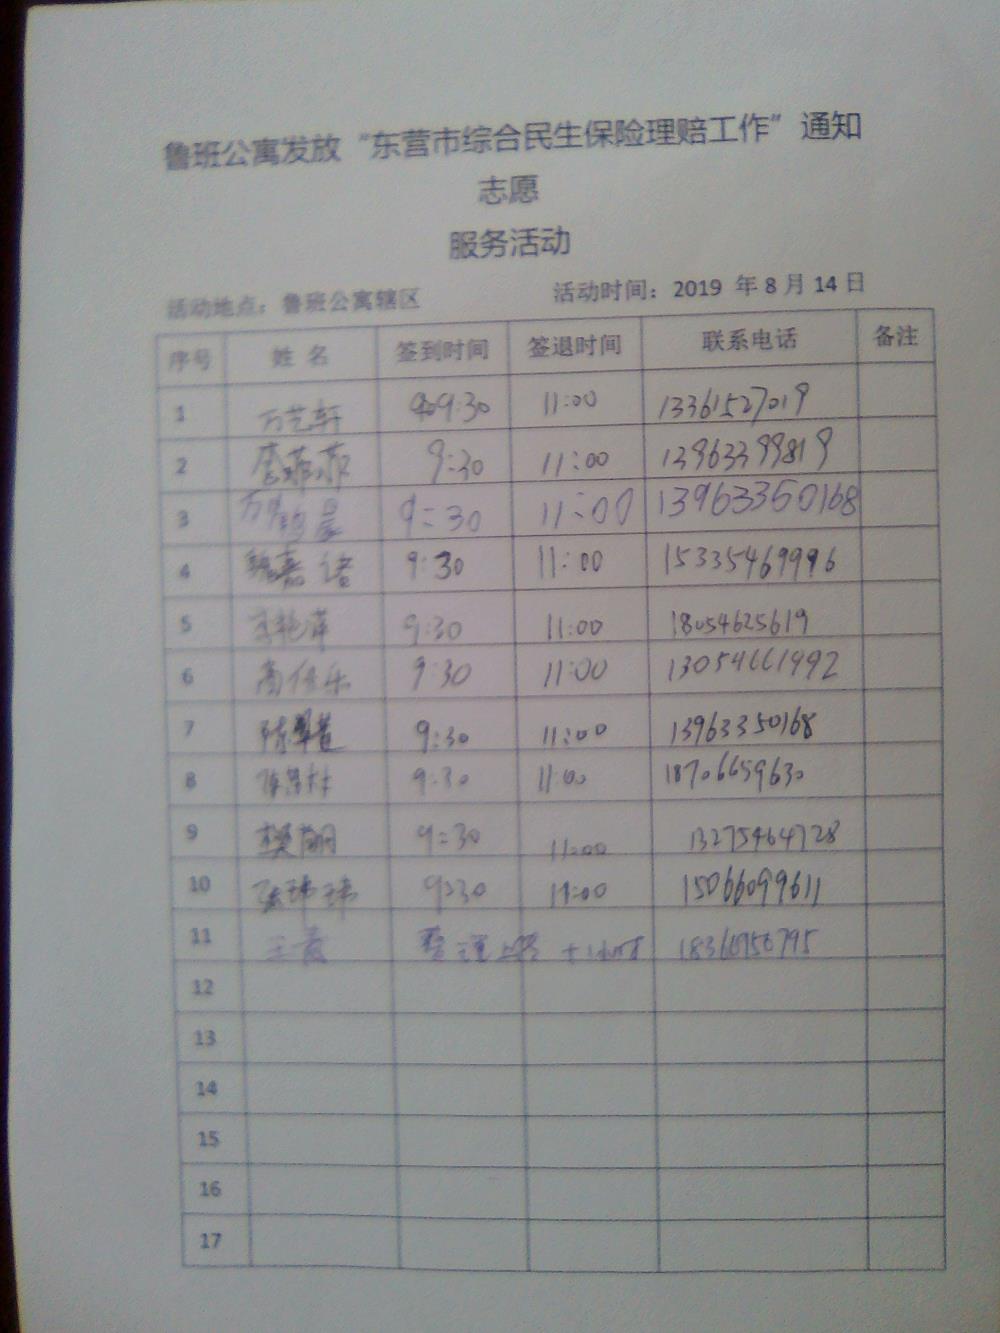 鲁班公寓发放“东营市综合民生保险理赔工作”通知
志愿
服务活动
活动地点：鲁班公寓辖区 活动时间：2019 年 8 月 14 日
序号 姓 名 签到时间 签退时间 联系电话 备注
1 万艺轩 9:30 11:00 13361527019
2 9:30 11:00 13963399819
3 9:30 11:00 13963350168
4 魏嘉诺 9:30 11:00 15335469996
5 李艳萍 9:30 11:00 18054625619
6 9:30 11:00 13054661992
7 9:30 11:00 13963350168
8 9:30 11:00 18706659630
9 9:30 11:00 13275464728
10 张玮玮 9:30 11:00 15066099611
11 整理上传 +1小时
12
13
14
15
16
17